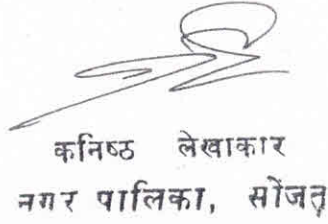 कनिष्ठ लेखाकार
नगर पालिका, सोंजत